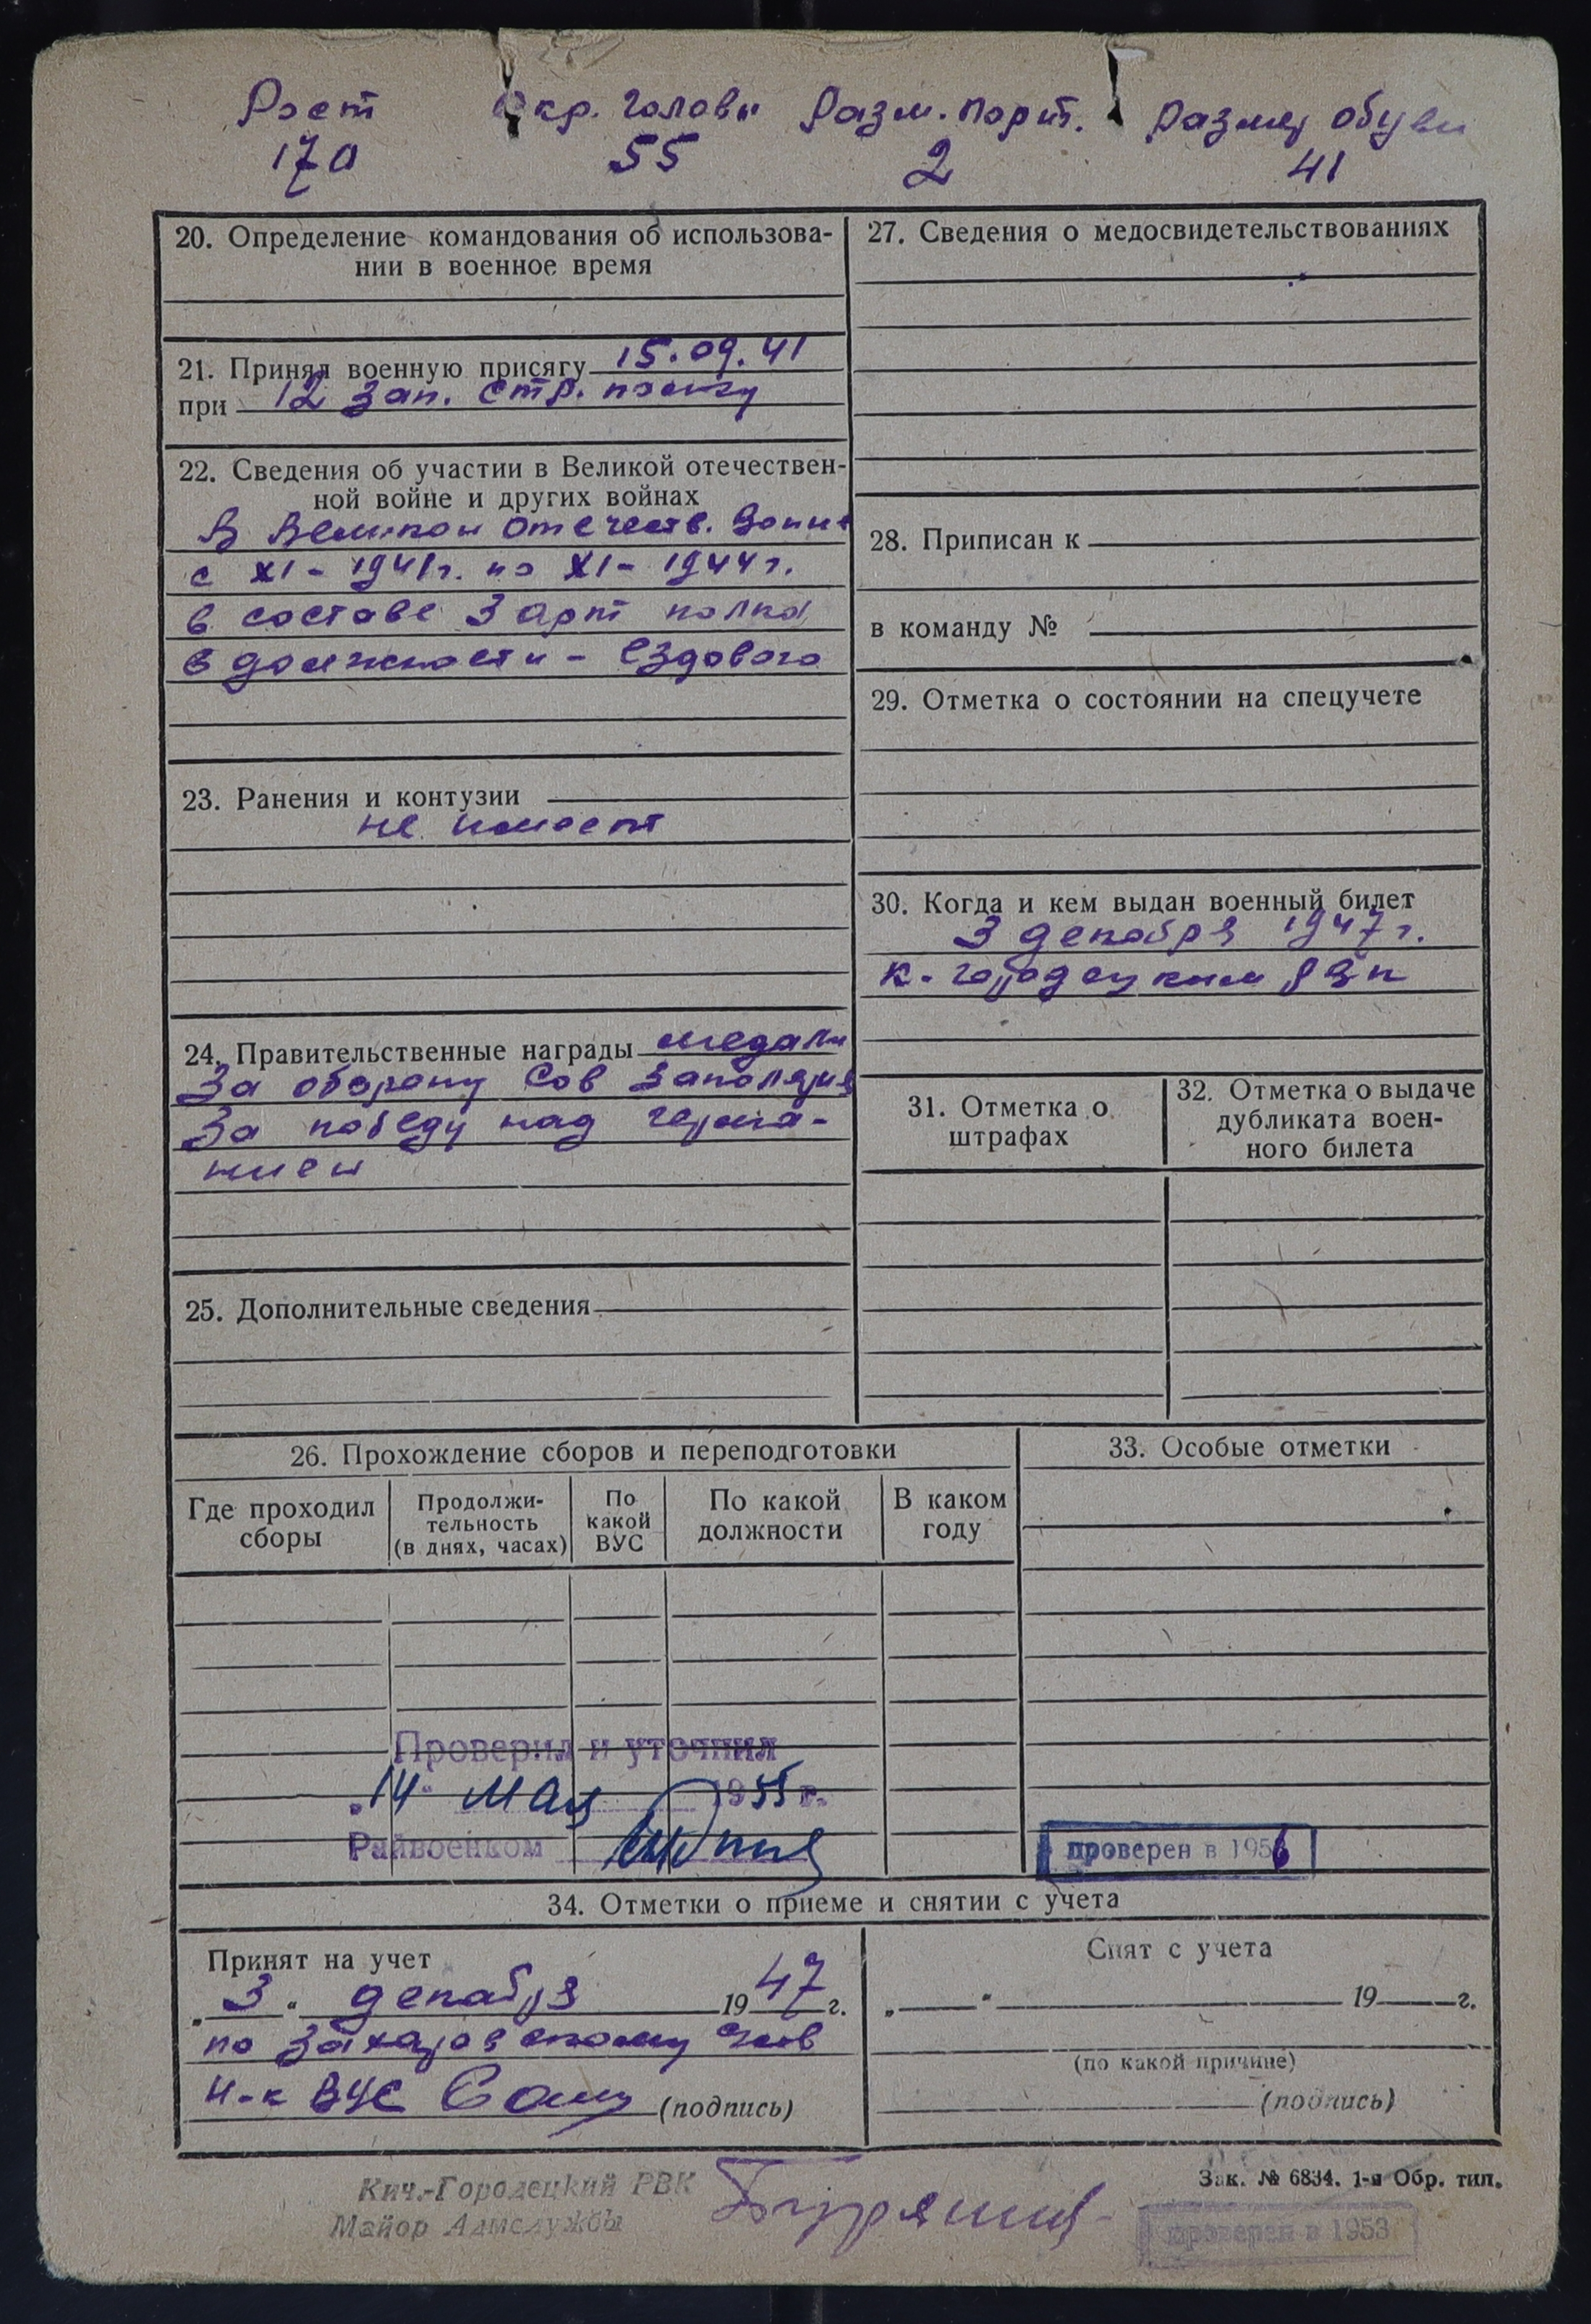 Рост Окр. головы Разм. порт. Размер обуви
170 55 2 41
20. Определение командования об использова-
нии в военное время
21. Принял военную присягу 15.09.41
при 12 зап. стр. полку
22. Сведения об участии в Великой отечествен-
ной войне и других войнах
В Великой Отечеств. войне
с XI - 1941г. по XI - 1944г.
в составе 3 арт полка
в должности - ездового
23. Ранения и контузии
не имеет
24. Правительственные награды медали
За оборону Сов Заполярья
За победу над герма-
нией
25. Дополнительные сведения
27. Сведения о медосвидетельствованиях
28. Приписан к
в команду №
29. Отметка о состоянии на спецучете
30. Когда и кем выдан военный билет
3 декабря 1947г.
К-городецким РВК
31. Отметка о
штрафах
32. Отметка о выдаче
дубликата воен-
ного билета
26. Прохождение сборов и переподготовки
Где проходил
сборы
Продолжи-
тельность
(в днях, часах)
По
какой
ВУС
По какой
должности
В каком
году
Проверил и уточнил
„14" мая 1955 г.
Райвоенком
33. Особые отметки
проверен в 1956
34. Отметки о приеме и снятии с учета
Принят на учет
„3" декабря 1947 г.
по Захаровскому
Н-к ВУС (подпись)
Снят с учета
„ " 19 г.
(по какой причине)
(подпись)
Кич.-Городецкий РВК
Майор Адмслужбы
Зак. № 6834. 1-я Обр. тип.
проверен в 1953